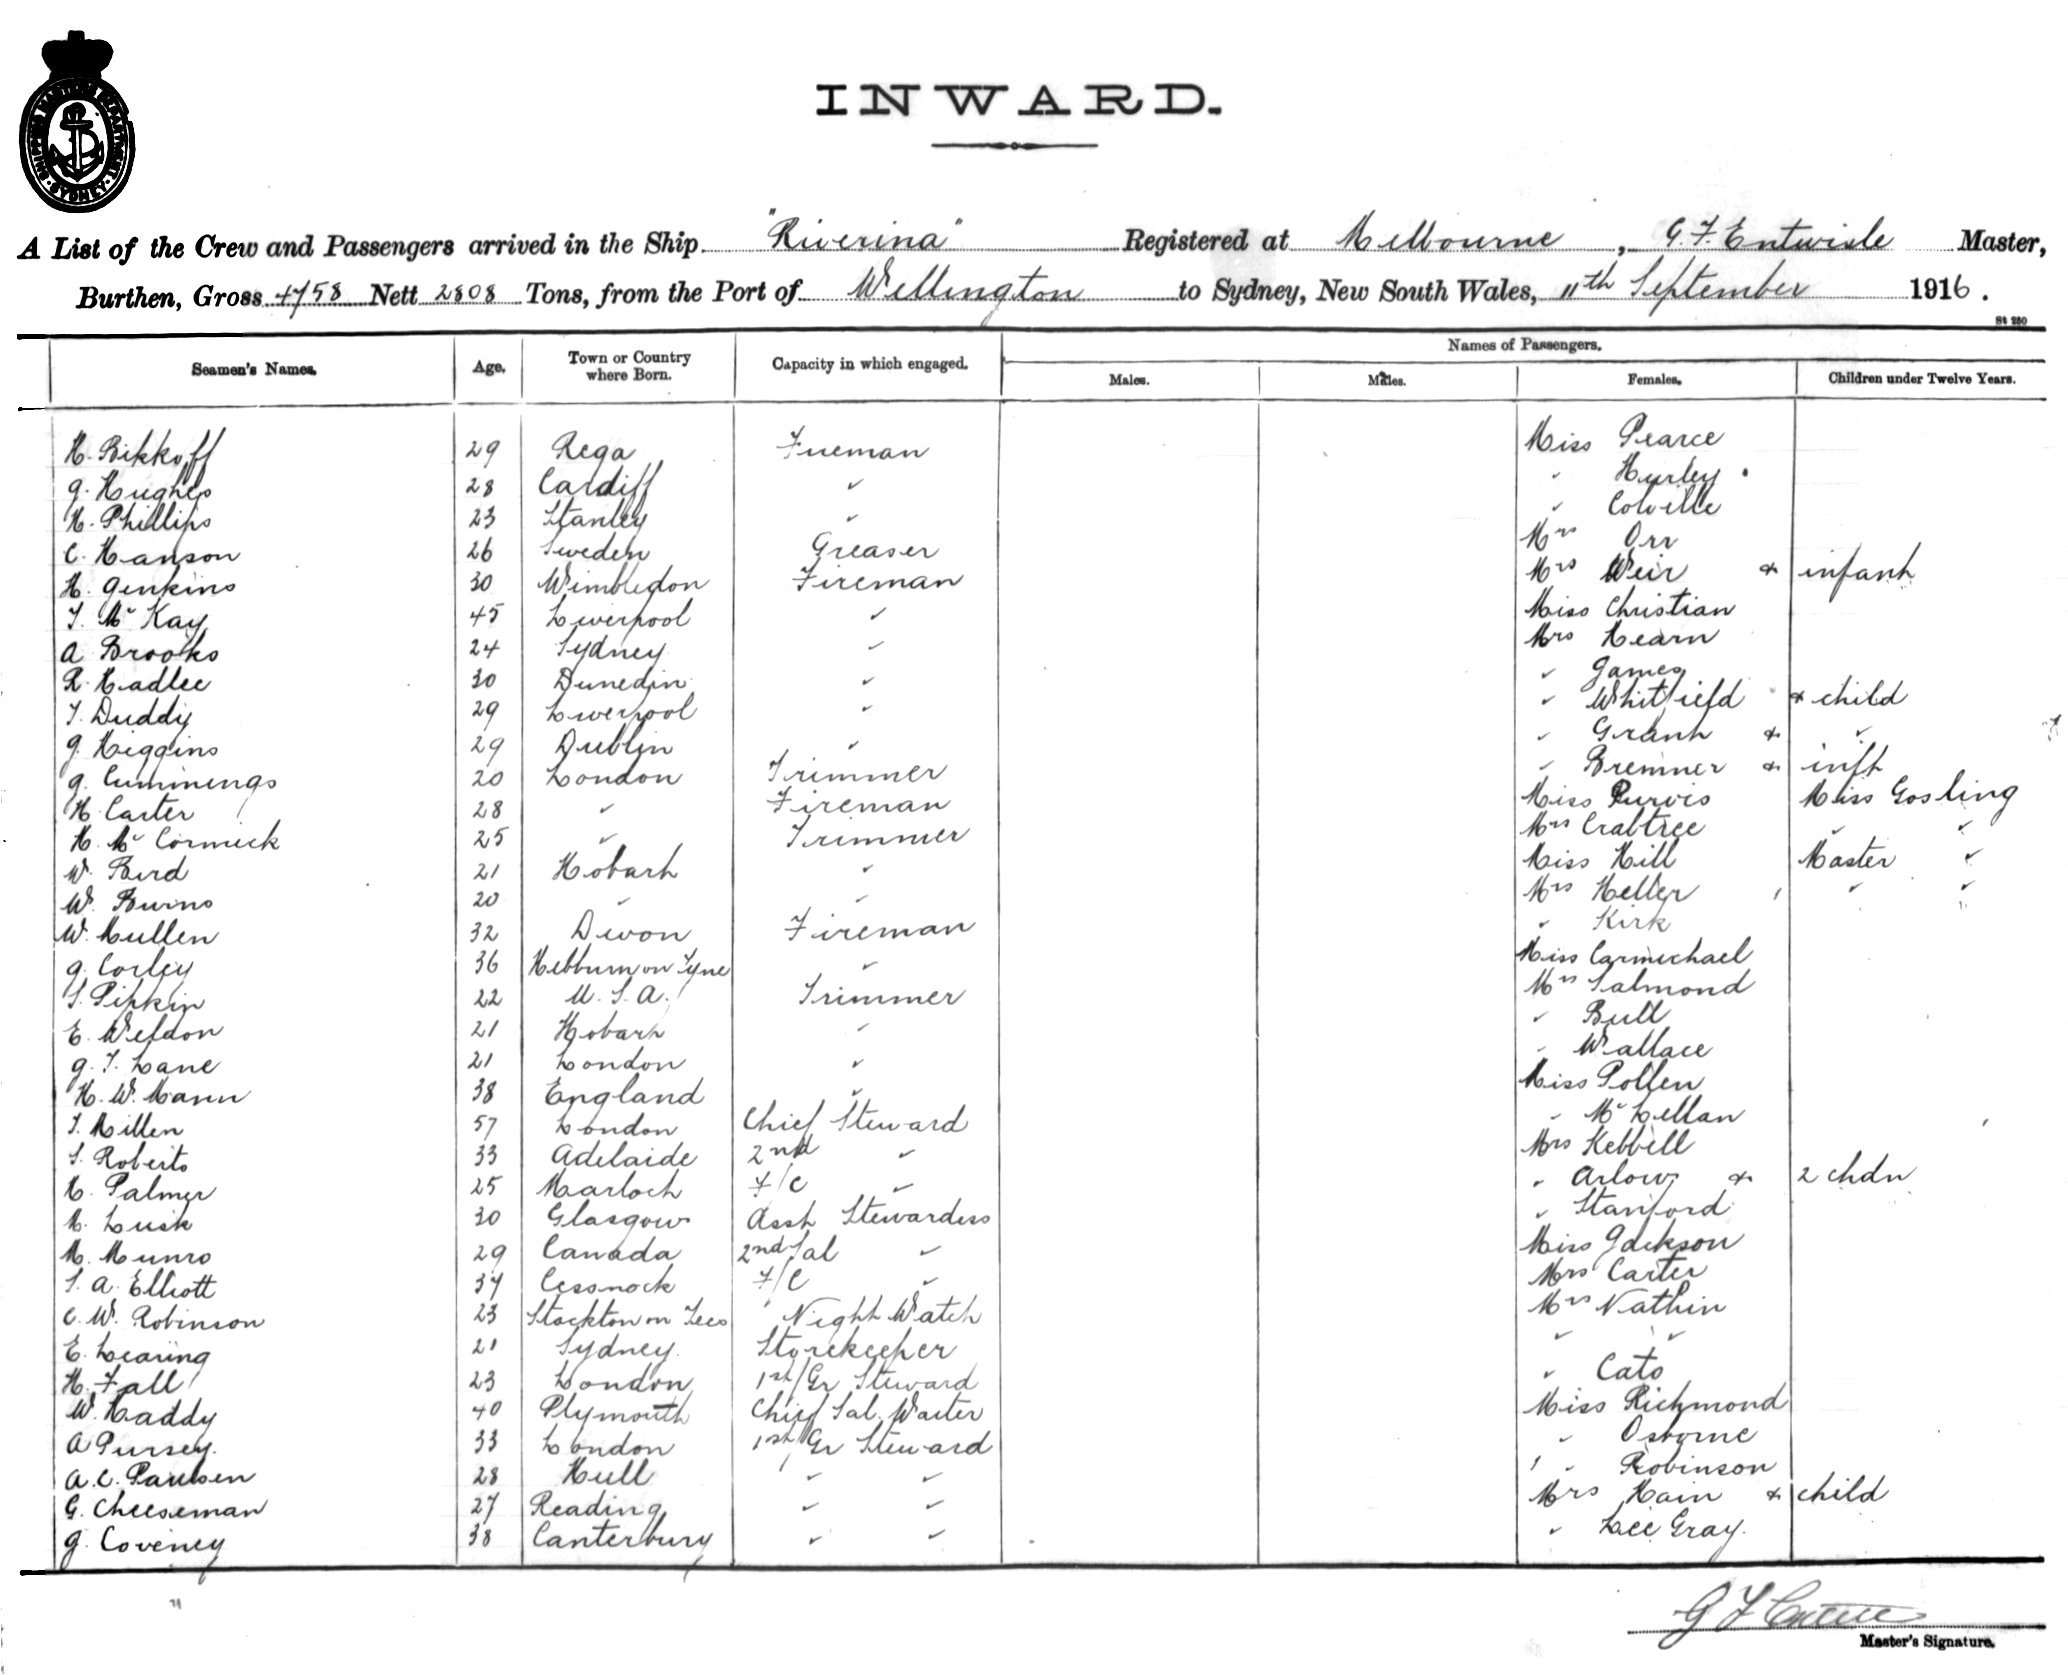 SHIPPING MASTER'S DEPARTMENT · SYDNEY ·
INWARD.
A List of the Crew and Passengers arrived in the Ship "Riverina" Registered at Melbourne, G. F. Entwisle Master,
Burthen, Gross 4758 Nett 2808 Tons, from the Port of Wellington to Sydney, New South Wales, 11th September 1916.
St 250
Seamen's Names. Age. Town or Country where Born. Capacity in which engaged. Names of Passengers.
Males. Males. Females. Children under Twelve Years.
H. Bikkoff 29 Rega Fireman Miss Pearce
J. Hughes 28 Cardiff " " Hurley
H. Phillips 23 Stanley " " Colville
C. Hanson 26 Sweden Greaser Mrs Orr
H. Jenkins 30 Wimbledon Fireman Mrs Weir & infant
T. McKay 45 Liverpool " Miss Christian
A Brooks 24 Sydney " Mrs Hearn
R. Hadlee 30 Dunedin " " James
T. Duddy 29 Liverpool " " Whitfield & child
J. Higgins 29 Dublin " " Grant & "
J. Cummings 20 London Trimmer " Bremner & inft
H. Carter 28 " Fireman Miss Purvis Miss Gosling
H. McCormick 25 " Trimmer Mrs Crabtree " "
W. Bird 21 Hobart " Miss Hill Master "
W. Burns 20 " " Mrs Heller " "
W. Mullen 32 Devon Fireman " Kirk
J. Corley 36 Hebburn on Tyne " Miss Carmichael
S. Pipkin 22 U.S.A. Trimmer Mrs Salmond
E. Weldon 21 Hobart " " Bull
J. T. Lane 21 London " " Wallace
H. W. Mann 38 England " Miss Pollen
T. Millen 57 London Chief Steward " McLellan
S. Roberts 33 Adelaide 2nd " Mrs Kebbell
H. Palmer 25 Marloch F/C " " Arlow & 2 chdn
M. Lusk 30 Glasgow Asst Stewardess " Stanford
M. Munro 29 Canada 2nd Sal " Miss Jackson
S. A. Elliott 37 Cessnock F/C " Mrs Carter
C. W. Robinson 23 Stockton on Tees Night Watch Mrs Nathin
E. Learing 21 Sydney Storekeeper " "
H. Fall 23 London 1st/Gr Steward " Cato
W. Haddy 40 Plymouth Chief Sal. Waiter Miss Richmond
A Pursey. 33 London 1st/Gr Steward " Osborne
A. C. Paulsen 28 Hull " " " Robinson
G. Cheeseman 27 Reading " " Mrs Hain & child
J. Coveney 38 Canterbury " " " Lee Gray.
Master's Signature.